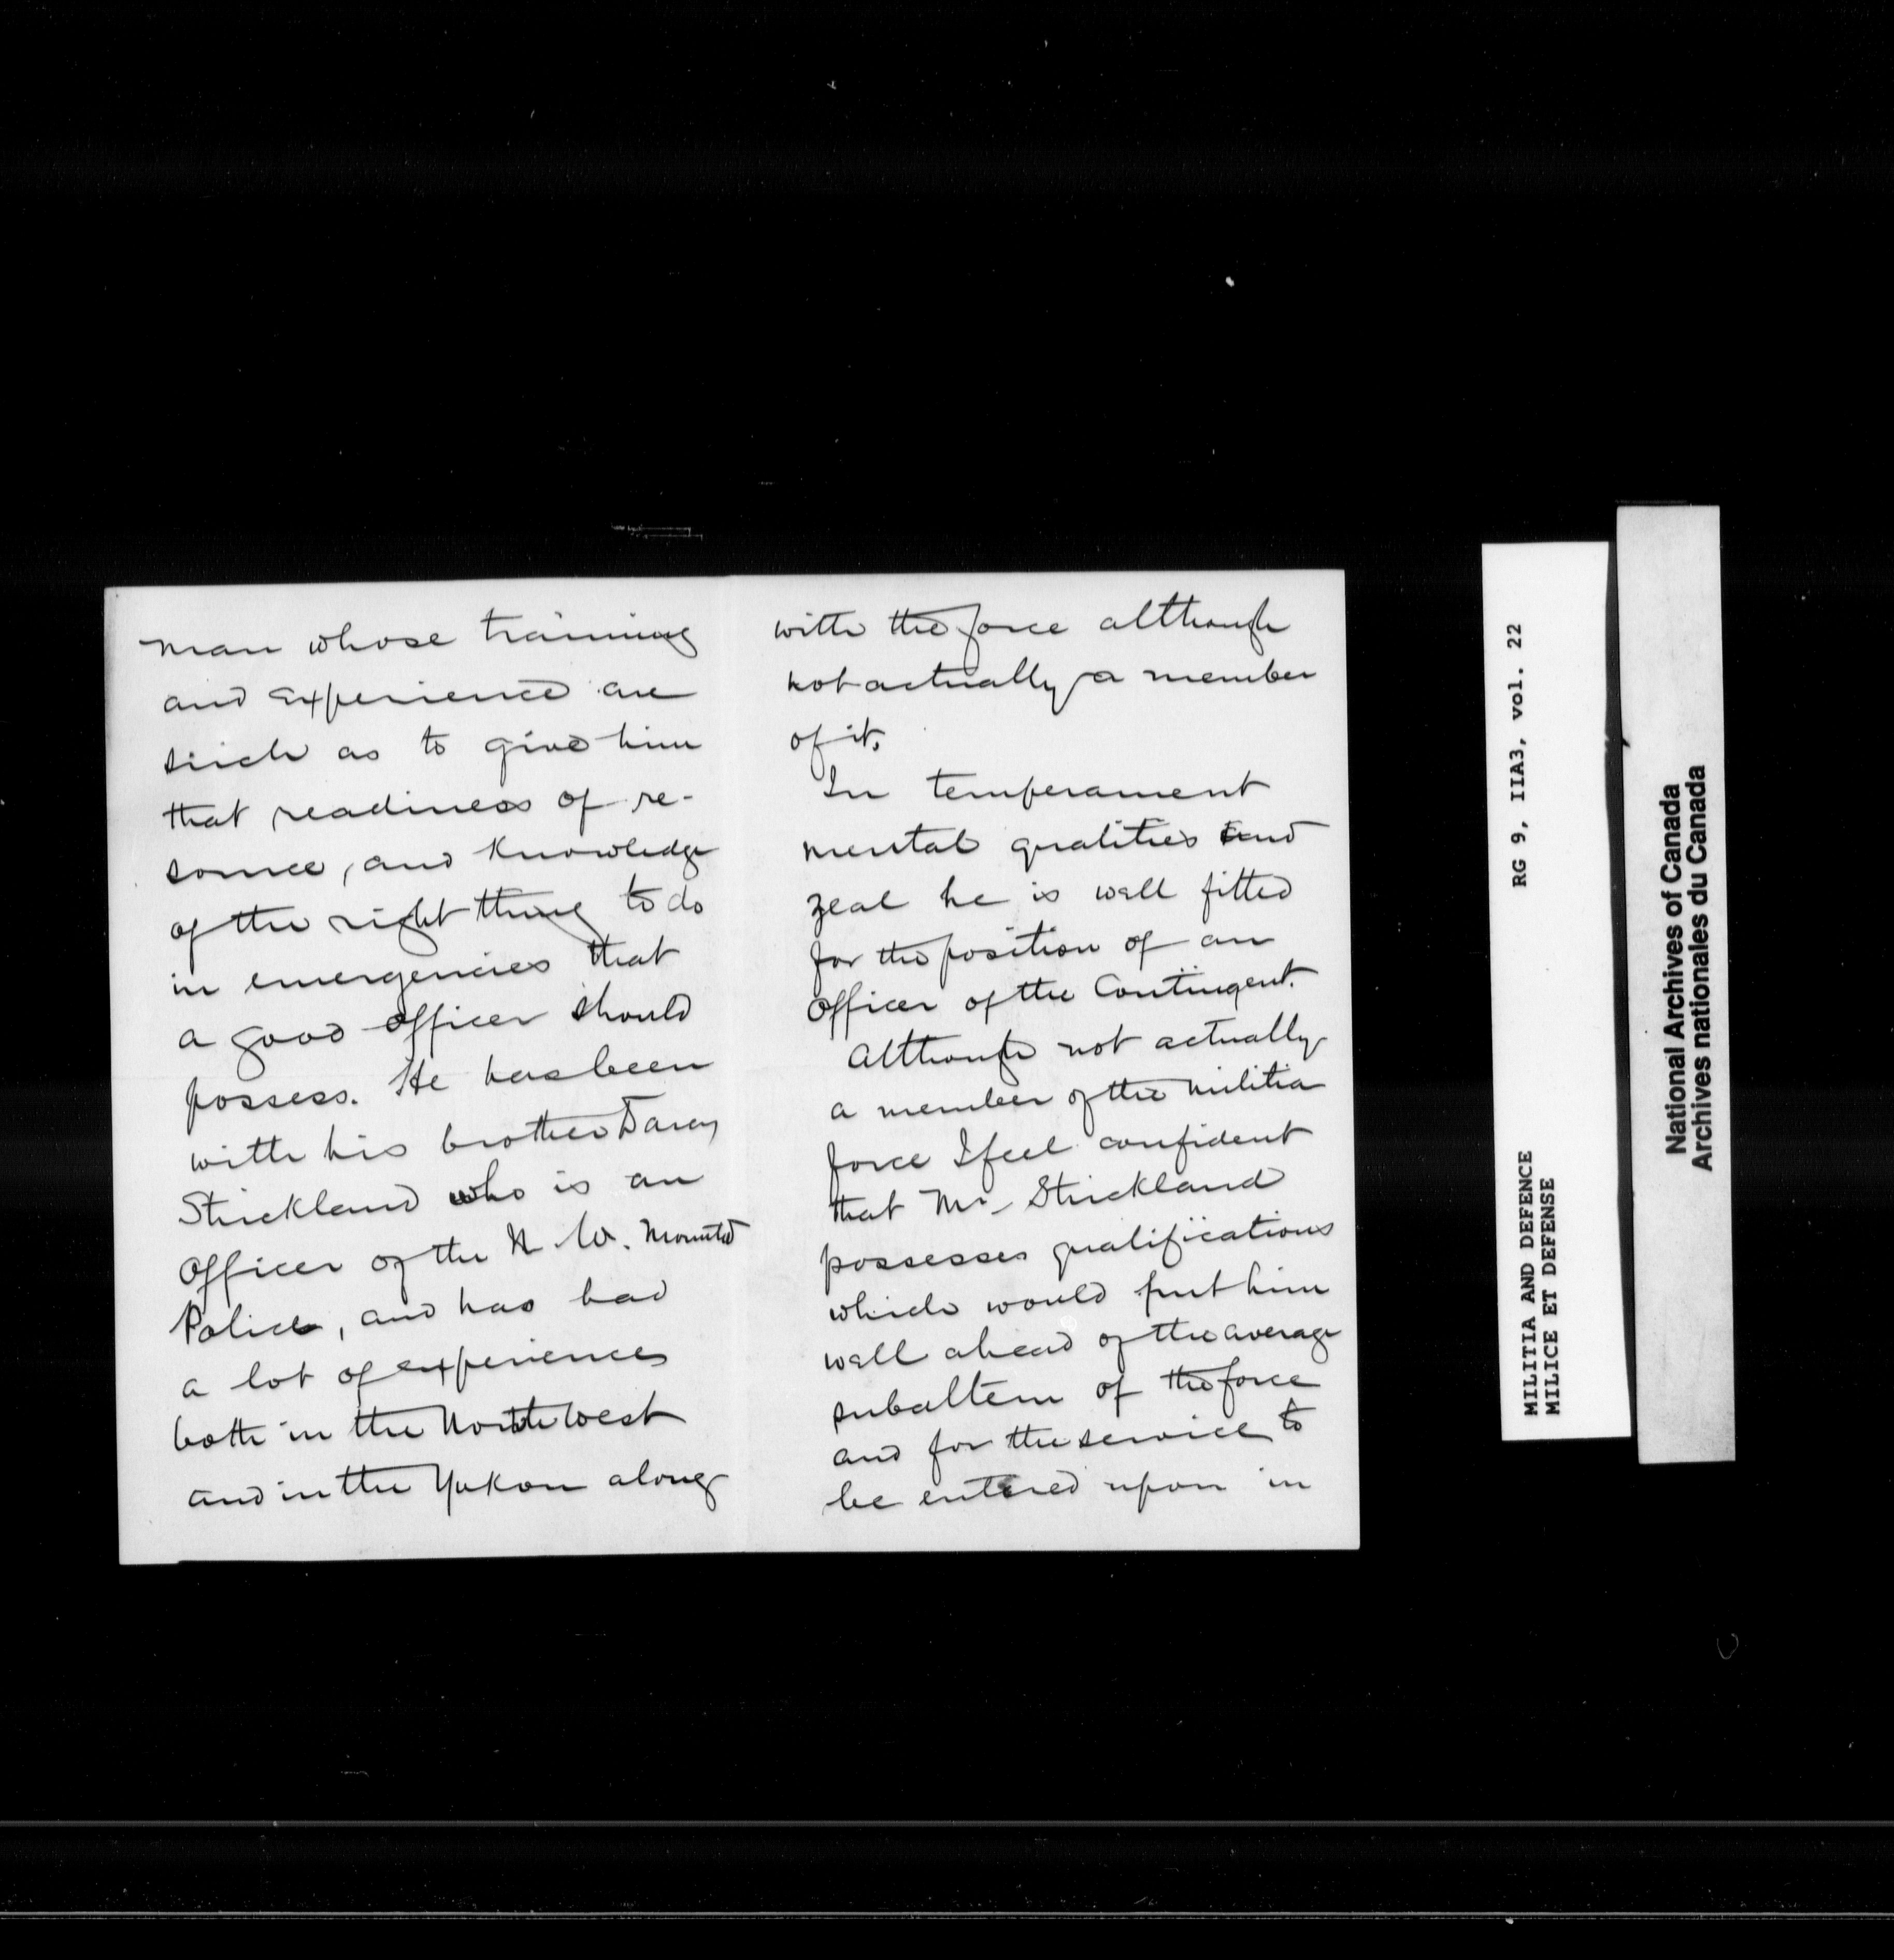 man whose training
and experience are
such as to give him
that readiness of re-
source, and knowledge
of the right thing to do
in emergencies that
a good officer should
possess. He has been
with his brother Darcy
Strickland who is an
Officer of the N. W. Mounted
Police, and has had
a lot of experience
both in the North West
and in the Yukon along
with the force although
not actually a member
of it.
In temperament
mental qualities and
zeal he is well fitted
for the position of an
Officer of the Contingent.
Although not actually
a member of the militia
force I feel confident
that Mr. Strickland
possesses qualifications
which would put him
well ahead of the average
subaltern of the force
and for the service to
be entered upon in
MILITIA AND DEFENCE RG 9, IIA3, vol. 22
MILICE ET DEFENSE
National Archives of Canada
Archives nationales du Canada